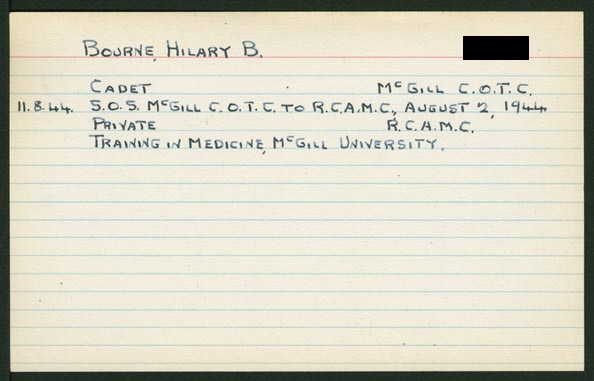 BOURNE, HILARY B.
CADET McGILL C.O.T.C.
11.8.44. S.O.S. McGILL C.O.T.C. TO R.C.A.M.C., AUGUST 2, 1944
PRIVATE R.C.A.M.C.
TRAINING IN MEDICINE, McGILL UNIVERSITY.